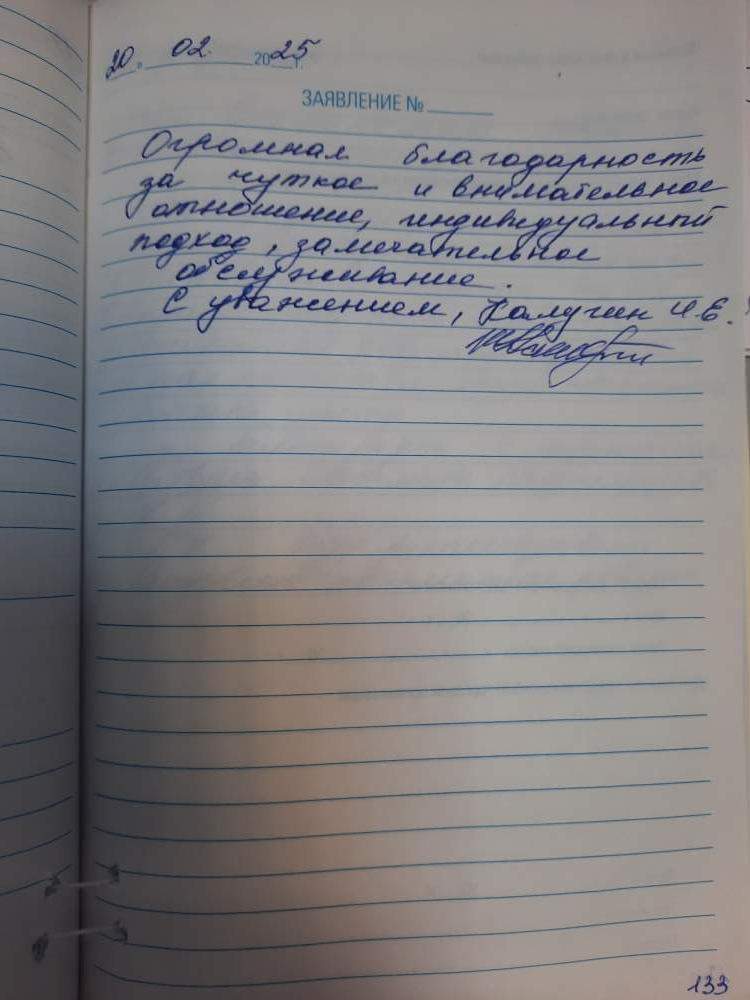 20. 02. 2025 г.
ЗАЯВЛЕНИЕ №
Огромная благодарность
за чуткое и внимательное
отношение, индивидуальный
подход, замечательное
обслуживание.
С уважением, Калугин И.Е.
133